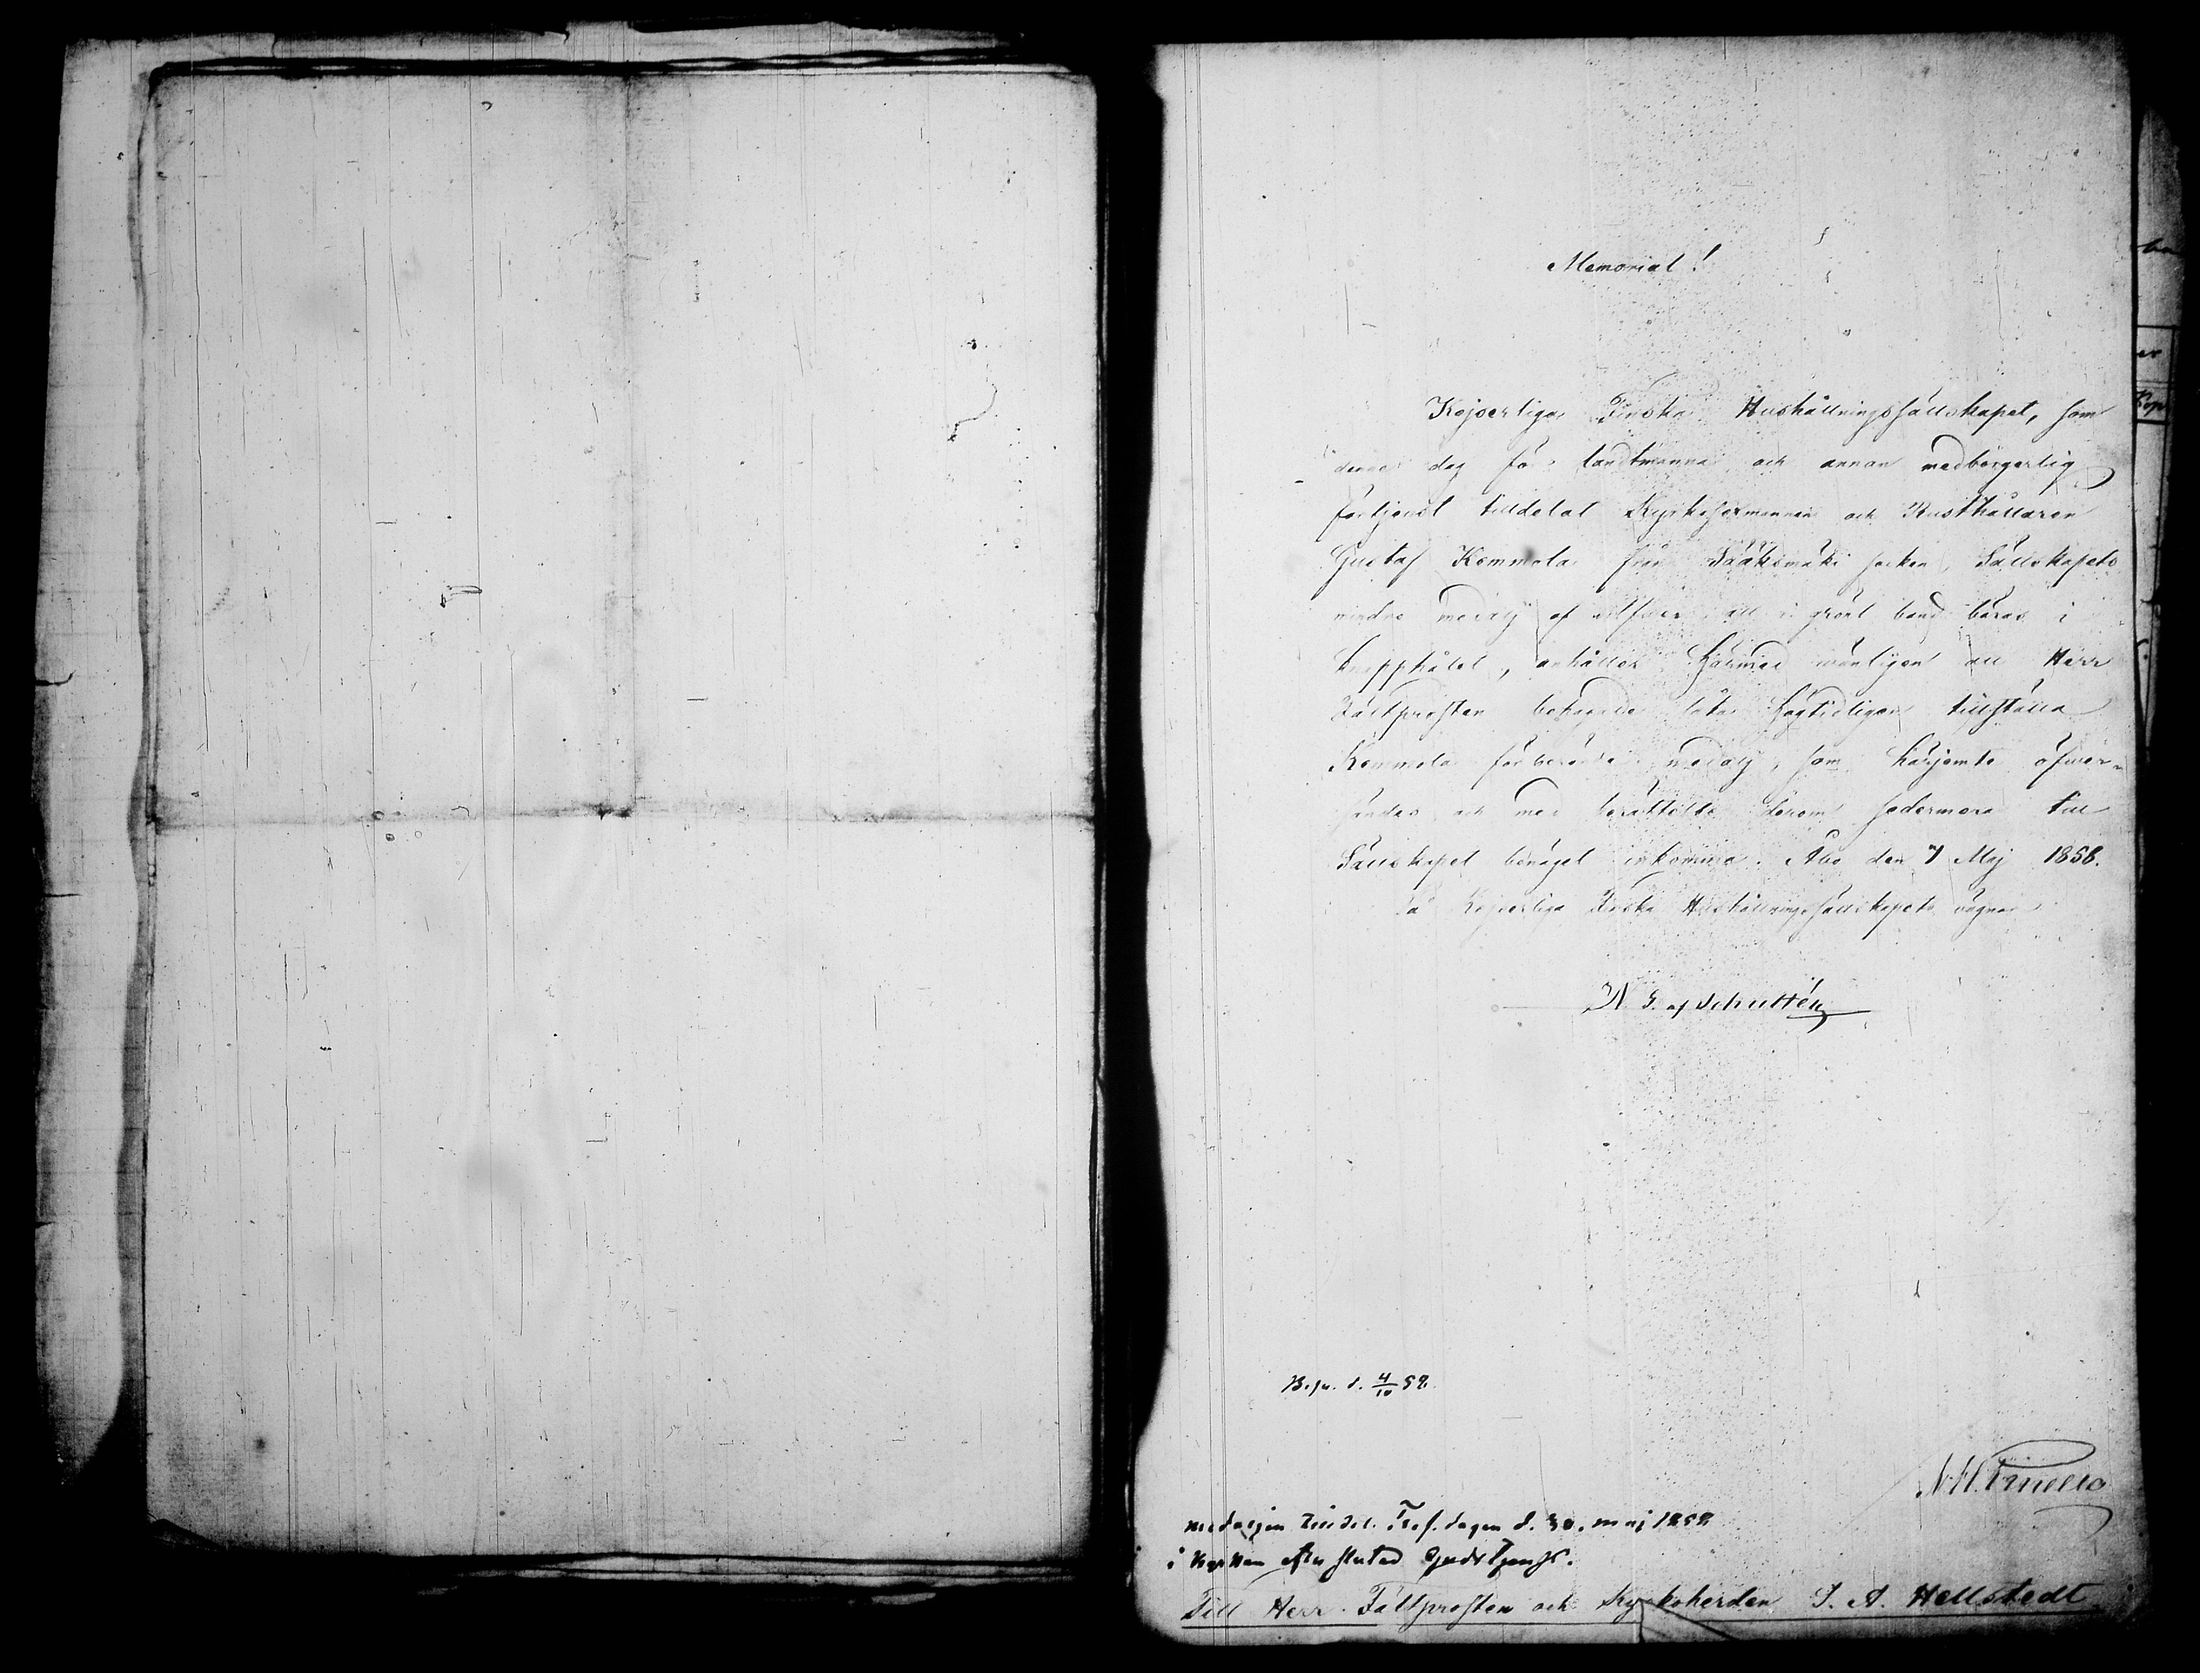 Memorial!
Kejserliga Finska Hushållningssällskapet, som
denna dag för landtmanna och annan medborgerlig
förtjenst tilldelat Kyrkosexmannen och Rusthållaren
Gustaf Kemmola från Sääksmäki socken, Sällskapets
mindre medalj af silfver att i grönt band bäras i
knapphålet, anhåller härmed vänligen att Herr
Fältprosten behagade låta högtidligen tillställa
Kemmola förberörde medalj, som härjemte öfver-
sändas och med berättelse derom sedermera till
Sällskapet benäget inkomma. Åbo den 7 Maj 1858.
På Kejserliga Finska Hushållningssällskapets vägnar
W. G. af Schultén
Besv. d. 4/10 58.
N. H. Pinello
medaljen tilldel. Tref. dagen d. 30. maj 1858
i kyrkan efter slutad Gudstjenst.
Till Herr Fältprosten och Kyrkoherden J. A. Hellstedt